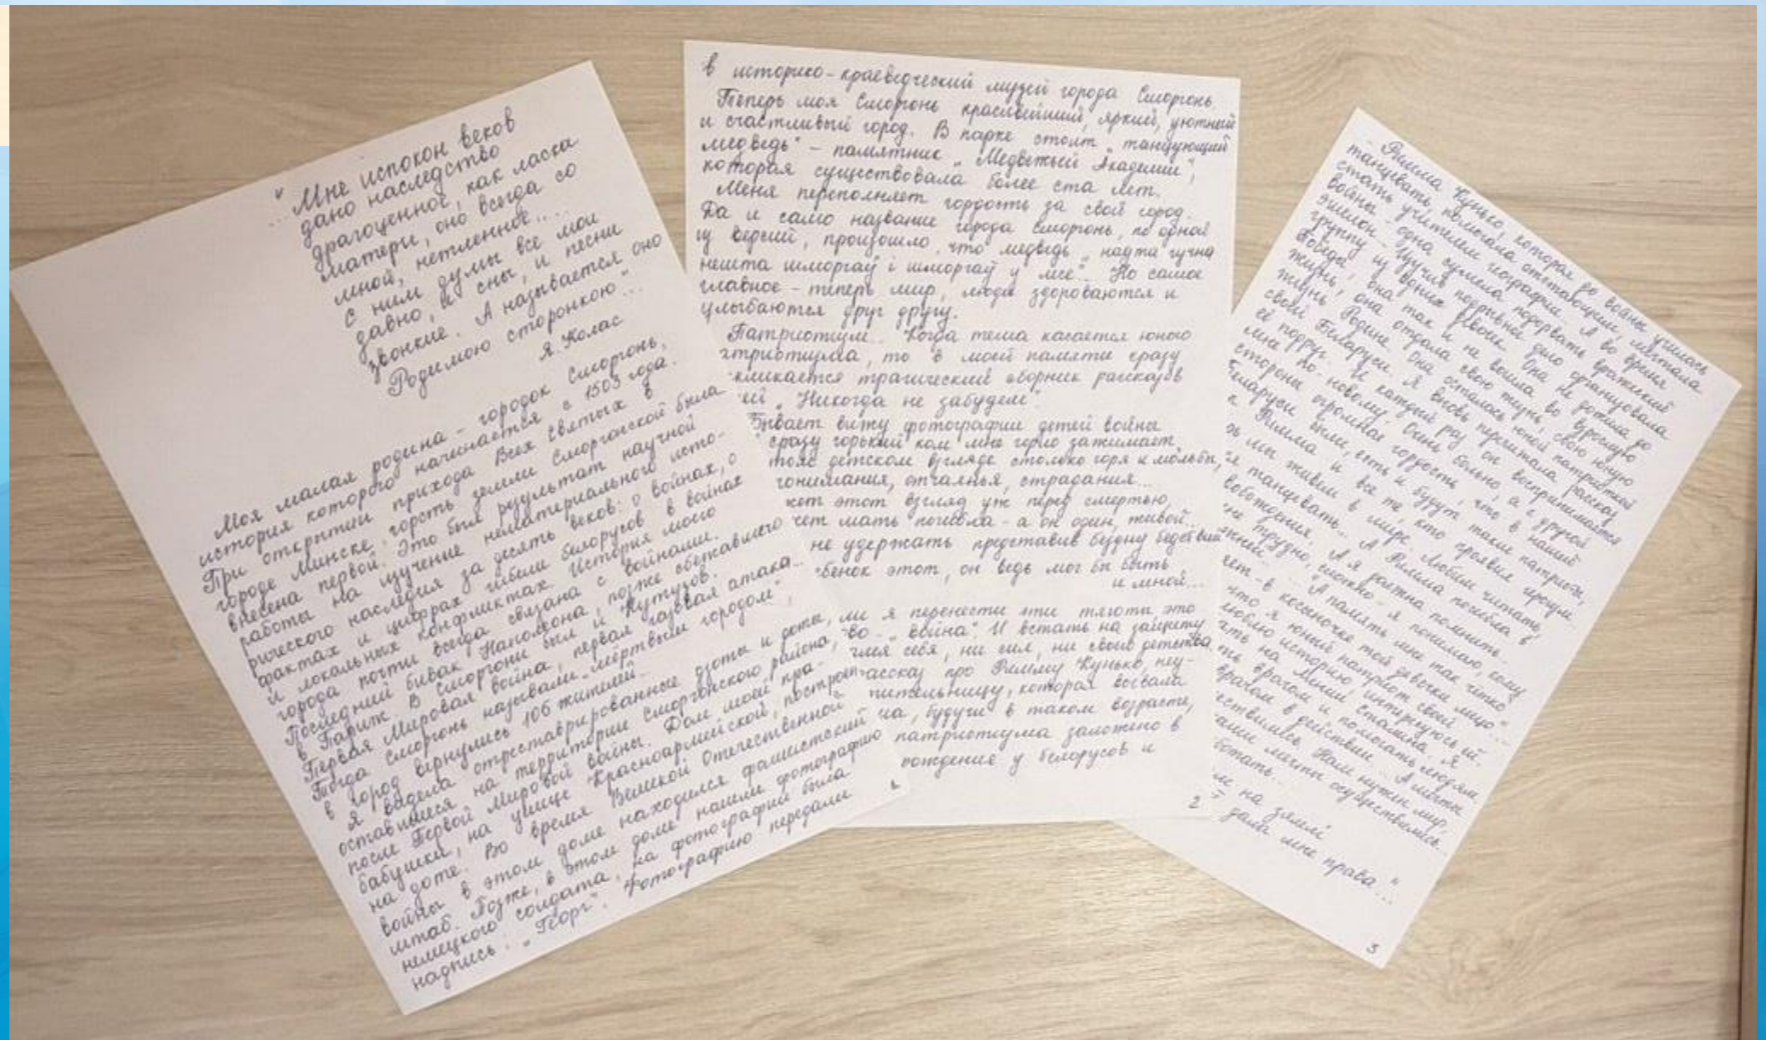 "Мне испокон веков
дано наследство
драгоценное, как ласка
матери, оно всегда со
мной, нетленное...
С ним думы все мои
давно, и сны, и песни
звонкие. А называется оно
Родимою сторонкою"...
Я. Колас
Моя малая родина - городок Сморгонь,
история которого начинается с 1503 года.
При открытии прихода Всех Святых в
городе Минске, горсть земли Сморгонской была
внесена первой. Это был результат научной
работы на изучение нематериального исто-
рического наследия за десять веков: о войнах, о
фактах и цифрах гибели белорусов в войнах
и локальных конфликтах. История моего
города почти всегда связана с войнами.
Последний бивак Наполеона, позже сбежавшего
в Париж. В Сморгони был и Кутузов.
Первая Мировая война, первая газовая атака...
Тогда Сморгонь называли "мёртвым городом",
в город вернулись 106 жителей...
Я видела отреставрированные дзоты и доты,
оставшиеся на территории Сморгонского района,
после Первой Мировой войны. Дом моей пра-
бабушки, на улице Красноармейской, построен
на доте. Во время Великой Отечественной
войны в этом доме находился фашистский
штаб. Позже, в этом доме нашли фотографию
немецкого солдата, на фотографии была
надпись: "Георг". Фотографию передали
1
в историко-краеведческий музей города Сморгонь.
Теперь моя Сморгонь красивейший, яркий, уютный
и счастливый город. В парке стоит "танцующий
медведь" - памятник "Медвежьей Академии",
которая существовала более ста лет.
Меня переполняет гордость за свой город.
Да и само название города Сморгонь, по одной
из версий, произошло что медведь "надта гучна
нешта шморгаў і шморгаў у лесе". Но самое
главное - теперь мир, люди здороваются и
улыбаются друг другу.
Патриотизм... Когда тема касается юного
атриотизма, то в моей памяти сразу
кликается трагический сборник рассказов
"Никогда не забудем".
Бывает вижу фотографии детей войны
сразу горький ком мне горло зажимает.
детском взгляде столько горя и мольбы,
онимания, отчаянья, страдания...
жет этот взгляд уж перед смертью,
жет мать погибла - а он один, живой...
не удержать представив бездну бедствий
бенок этот, он ведь мог бы быть
и мной...
ли я перенести эти тяготы это
во - "война". И встать на защиту
имея себя, ни сил, ни своего детства.
рассказ про Римму Кунько, неу-
ительницу, которая воевала
на, будучи в таком возрасте,
патриотизма заложено в
рождения у белорусов и
2
Римма Кунько, которая до войны училась
танцевать, помогала отстающим, мечтала
стать учителем географии. А во время
войны - одна сумела подорвать вражеский
эшелон. Изучив подрывное дело организовала
группу из юных Она не дожила до
Победы, она так и не вошла во взрослую
жизнь, она отдала свою жизнь, свою юную
жизнь Родине. Она осталась юной патриоткой
своей Беларуси. Я вновь перечитала рассказ
её подруг. И каждый раз он воспринимается
мне по-новому. Очень больно, а с другой
стороны огромная гордость, что в нашей
Беларуси были, есть и будут такие патриоты,
к Римма и все те кто проявил героизм.
рь мы живём в мире. Любим читать,
танцевать... А Римма погибла в
вобождения. А я должна помнить...
не трудно, может - я понимаю, кому
"А память мне так чётко
ет - в косыночке той девочки лицо"...
что я юный патриот своей
люблю историю, интересуюсь ей.
ать на "Линии Сталина". Я
ть врагом и помогать людям
врагом в действии... А мечты
ществились. Нам нужен мир,
аши мечты осуществились...
ботать...
ме на зямлі
дала мне права..."
3